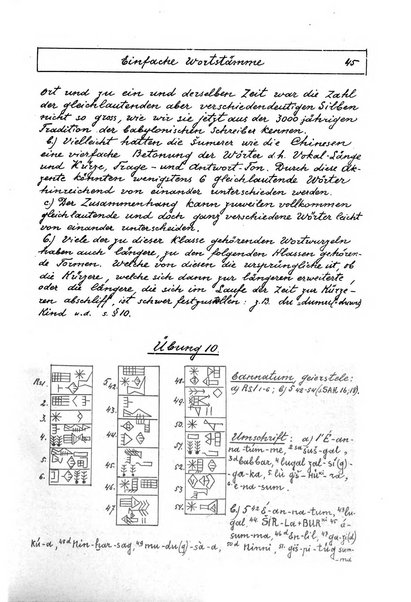 Einfache Wortstämme 45
ort und zu ein und derselben Zeit war die Zahl
der gleichlautenden aber verschiedendeutigen Silben
nicht so gross, wie wir sie jetzt aus der 3000 jährigen
Tradition der babylonischen Schreiber kennen.
b) Vielleicht hatten die Šumerer wie die Chinesen
eine vierfache Betonung der Wörter d.h. Vokal-Länge
und Kürze, Frage- und Antwort-Ton. Durch diese Ak-
zente könnten wenigstens 6 gleichlautende Wörter
hinreichend von einander unterschieden werden.
c) Der Zusammenhang kann zuweilen vollkommen
gleichlautende und doch ganz verschiedene Wörter leicht
von einander unterscheiden.
6) Viele der zu dieser Klasse gehörenden Wortwurzeln
haben auch längere, zu den folgenden Klassen gehören-
de Formen. Welche von diesen die ursprüngliche ist, ob
die Kürzere, welche sich dann zur längeren erweiterte,
oder die längere, die sich im Laufe der Zeit zur Kürze-
ren abschliff, ist schwer festzustellen: z.B. du, dumu,
Kind u.a. s. § 10.
Übung 10.
Eannatum, geierstele:
a) Rs/ 1-6; b) 5 42-54
Umschrift: a) 1 É-an-
na-tum-me, 2 sa šuš-gal,
3 d babbar, 4 lugal zal-si(g)-
ga-ka, 5 lù giš-
6 e-na-sum.
b) 5 42 É-an-na-tum, 43 lu-
gal 44 ŠIR-La+BUR 45 á-
sum-ma, 46 d En-lil, 47 ga-
kú-a, 48 d Nin-har-sag, 49 mu-du(g)-sà-a, 50 d Ninni, 51 giš-pi-túg sum-
ma
Rs1
2.
3.
4.
5.
6.
5 42.
43.
44.
45.
46.
47.
48.
49.
50.
51.